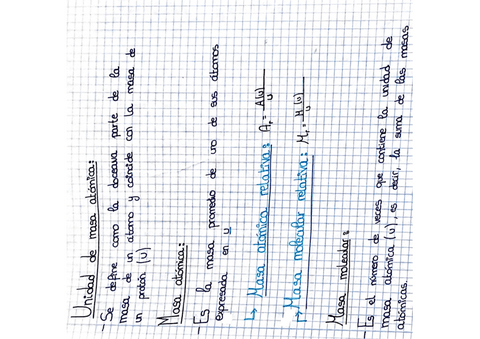 Unidad de masa atómica:
- Se define como la doceava parte de la
masa de un átomo y coincide con la masa de
un protón (u)
Masa atómica:
- Es la masa promedio de uno de sus átomos
expresada en u
↳ Masa atómica relativa: Ar = A(u) / u
↱ Masa molecular relativa: Mr = M(u) / u
Masa molecular:
- Es el número de veces que contiene la unidad de
masa atómica (u), es decir, la suma de las masas
atómicas.